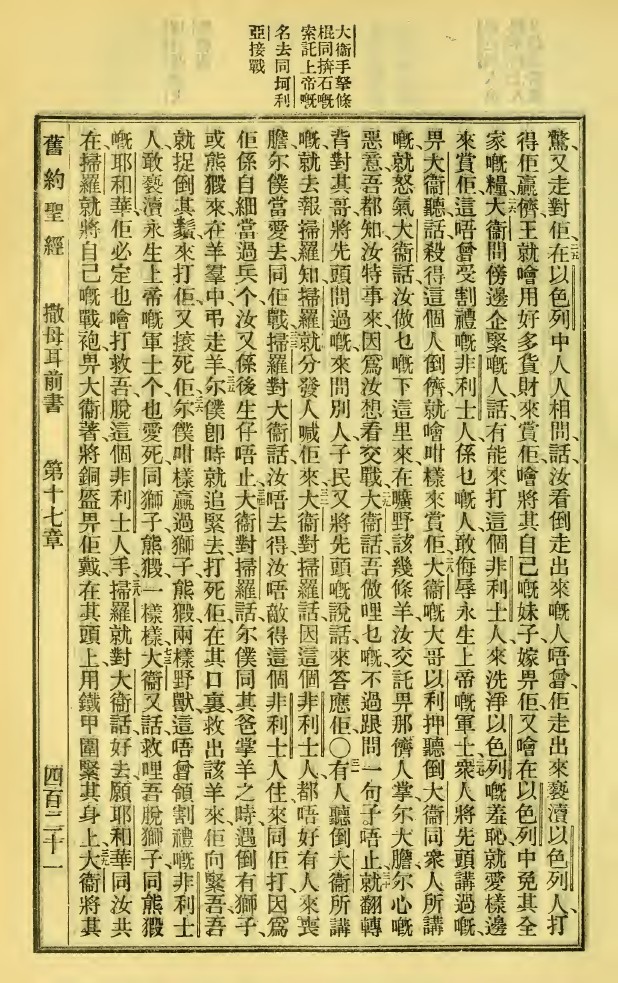 大衞手拏條
棍同擠石嘅
索託上帝嘅
名去同坷利
亞接戰
驚又走對佢在以色列中人人相問話汝看倒走出來嘅人唔曾佢走出來褻瀆以色列人打
得佢贏儕王就噲用好多貨財來賞佢噲將其自己嘅妹子嫁畀佢又噲在以色列中免其全
家嘅糧大衞問傍邊企緊嘅人話有能來打這個非利士人來洗淨以色列嘅羞恥就愛樣邊
來賞佢這唔曾受割禮嘅非利士人係乜嘅人敢侮辱永生上帝嘅軍士衆人將先頭講過嘅
畀大衞聽話殺得這個人倒儕就噲咁樣來賞佢大衞嘅大哥以利押聽倒大衞同衆人所講
嘅就怒氣大衞話汝做乜嘅下這里來在曠野該幾條羊汝交託畀那儕人掌尔大膽尔心嘅
惡意吾都知汝特事來因爲汝想看交戰大衞話吾做哩乜嘅不過跟問一句子唔止就翻轉
背對其哥將先頭問過嘅來問別人子民又將先頭嘅說話來答應佢○有人聽倒大衞所講
嘅就去報掃羅知掃羅就分發人喊佢來大衞對掃羅話因這個非利士人都唔好有人來喪
膽尔僕當愛去同佢戰掃羅對大衞話汝唔去得汝唔敵得這個非利士人住來同佢打因爲
佢係自細當過兵个汝又係後生仔唔止大衞對掃羅話尔僕同其爸掌羊之時遇倒有獅子
或熊𤠣來在羊羣中弔走羊尔僕卽時就追緊去打死佢在其口裏救出該羊來佢向緊吾吾
就捉倒其鬚來打佢又㨘死佢尔僕咁樣贏過獅子熊𤠣兩樣野獸這唔曾領割禮嘅非利士
人敢褻瀆永生上帝嘅軍士个也愛死同獅子熊𤠣一樣樣大衞又話救哩吾脫獅子同熊𤠣
嘅耶和華佢必定也噲打救吾脫這個非利士人手掃羅就對大衞話好去願耶和華同汝共
在掃羅就將自己嘅戰袍畀大衞著將銅盔畀佢戴在其頭上用鐵甲圍緊其身上大衞將其
舊約聖經 撒母耳前書 第十七章 四百二十一